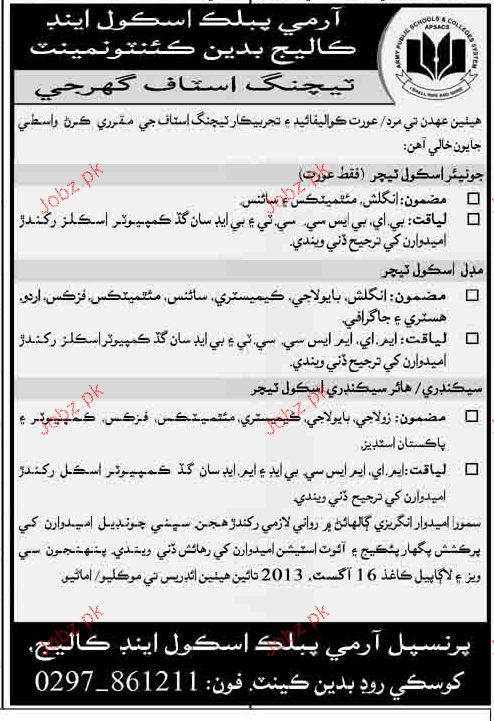 آرمي پبلڪ اسڪول اينڊ
ڪاليج بدين ڪئنٽونمينٽ
ٽيچنگ اسٽاف گهرجي
ARMY PUBLIC SCHOOLS & COLLEGES SYSTEM
APSACS
I SHALL RISE AND SHINE
هيٺين عهدن تي مرد/ عورت ڪواليفائيڊ ۽ تجربيڪار ٽيچنگ اسٽاف جي مقرري ڪرڻ واسطي
جايون خالي آهن:
جونيئر اسڪول ٽيچر (فقط عورت)
مضمون: انگلش، مئٿميٽڪس ۽ سائنس.
لياقت: بي.اي، بي.ايس سي. سي.ٽي ۽ بي ايڊ سان گڏ ڪمپيوٽر اسڪلز رکندڙ
اميدوارن کي ترجيح ڏني ويندي.
مڊل اسڪول ٽيچر
مضمون: انگلش، بايولاجي، ڪيميسٽري، سائنس، مئٿميٽڪس، فزڪس، اردو،
هسٽري ۽ جاگرافي.
لياقت: ايم.اي، ايم ايس سي. سي.ٽي ۽ بي ايڊ سان گڏ ڪمپيوٽر اسڪلز رکندڙ
اميدوارن کي ترجيح ڏني ويندي.
سيڪنڊري/ هائر سيڪنڊري اسڪول ٽيچر
مضمون: زولاجي، بايولاجي، ڪيميسٽري، مئٿميٽڪس، فزڪس، ڪمپيوٽر ۽
پاڪستان اسٽڊيز.
لياقت: ايم.اي، ايم ايس سي. بي ايڊ ۽ ايم.ايڊ سان گڏ ڪمپيوٽر اسڪل رکندڙ
اميدوارن کي ترجيح ڏني ويندي.
سمورا اميدوار انگريزي ڳالهائڻ ۾ رواني لازمي رکندڙ هجن. سڀني چونڊيل اميدوارن کي
پرڪشش پگهار پئڪيج ۽ آئوٽ اسٽيشن اميدوارن کي رهائش ڏني ويندي. پنهنجون سي
ويز ۽ لاڳاپيل ڪاغذ 16 آگسٽ، 2013 تائين هيٺين ائڊريس تي موڪليو/ اماڻيو.
پرنسپل آرمي پبلڪ اسڪول اينڊ ڪاليج،
کوسڪي روڊ بدين ڪينٽ. فون: 0297_861211
Jobz.pk
Jobz.pk
Jobz.pk
Jobz.pk
Jobz.pk
Jobz.pk
Jobz.pk
Jobz.pk